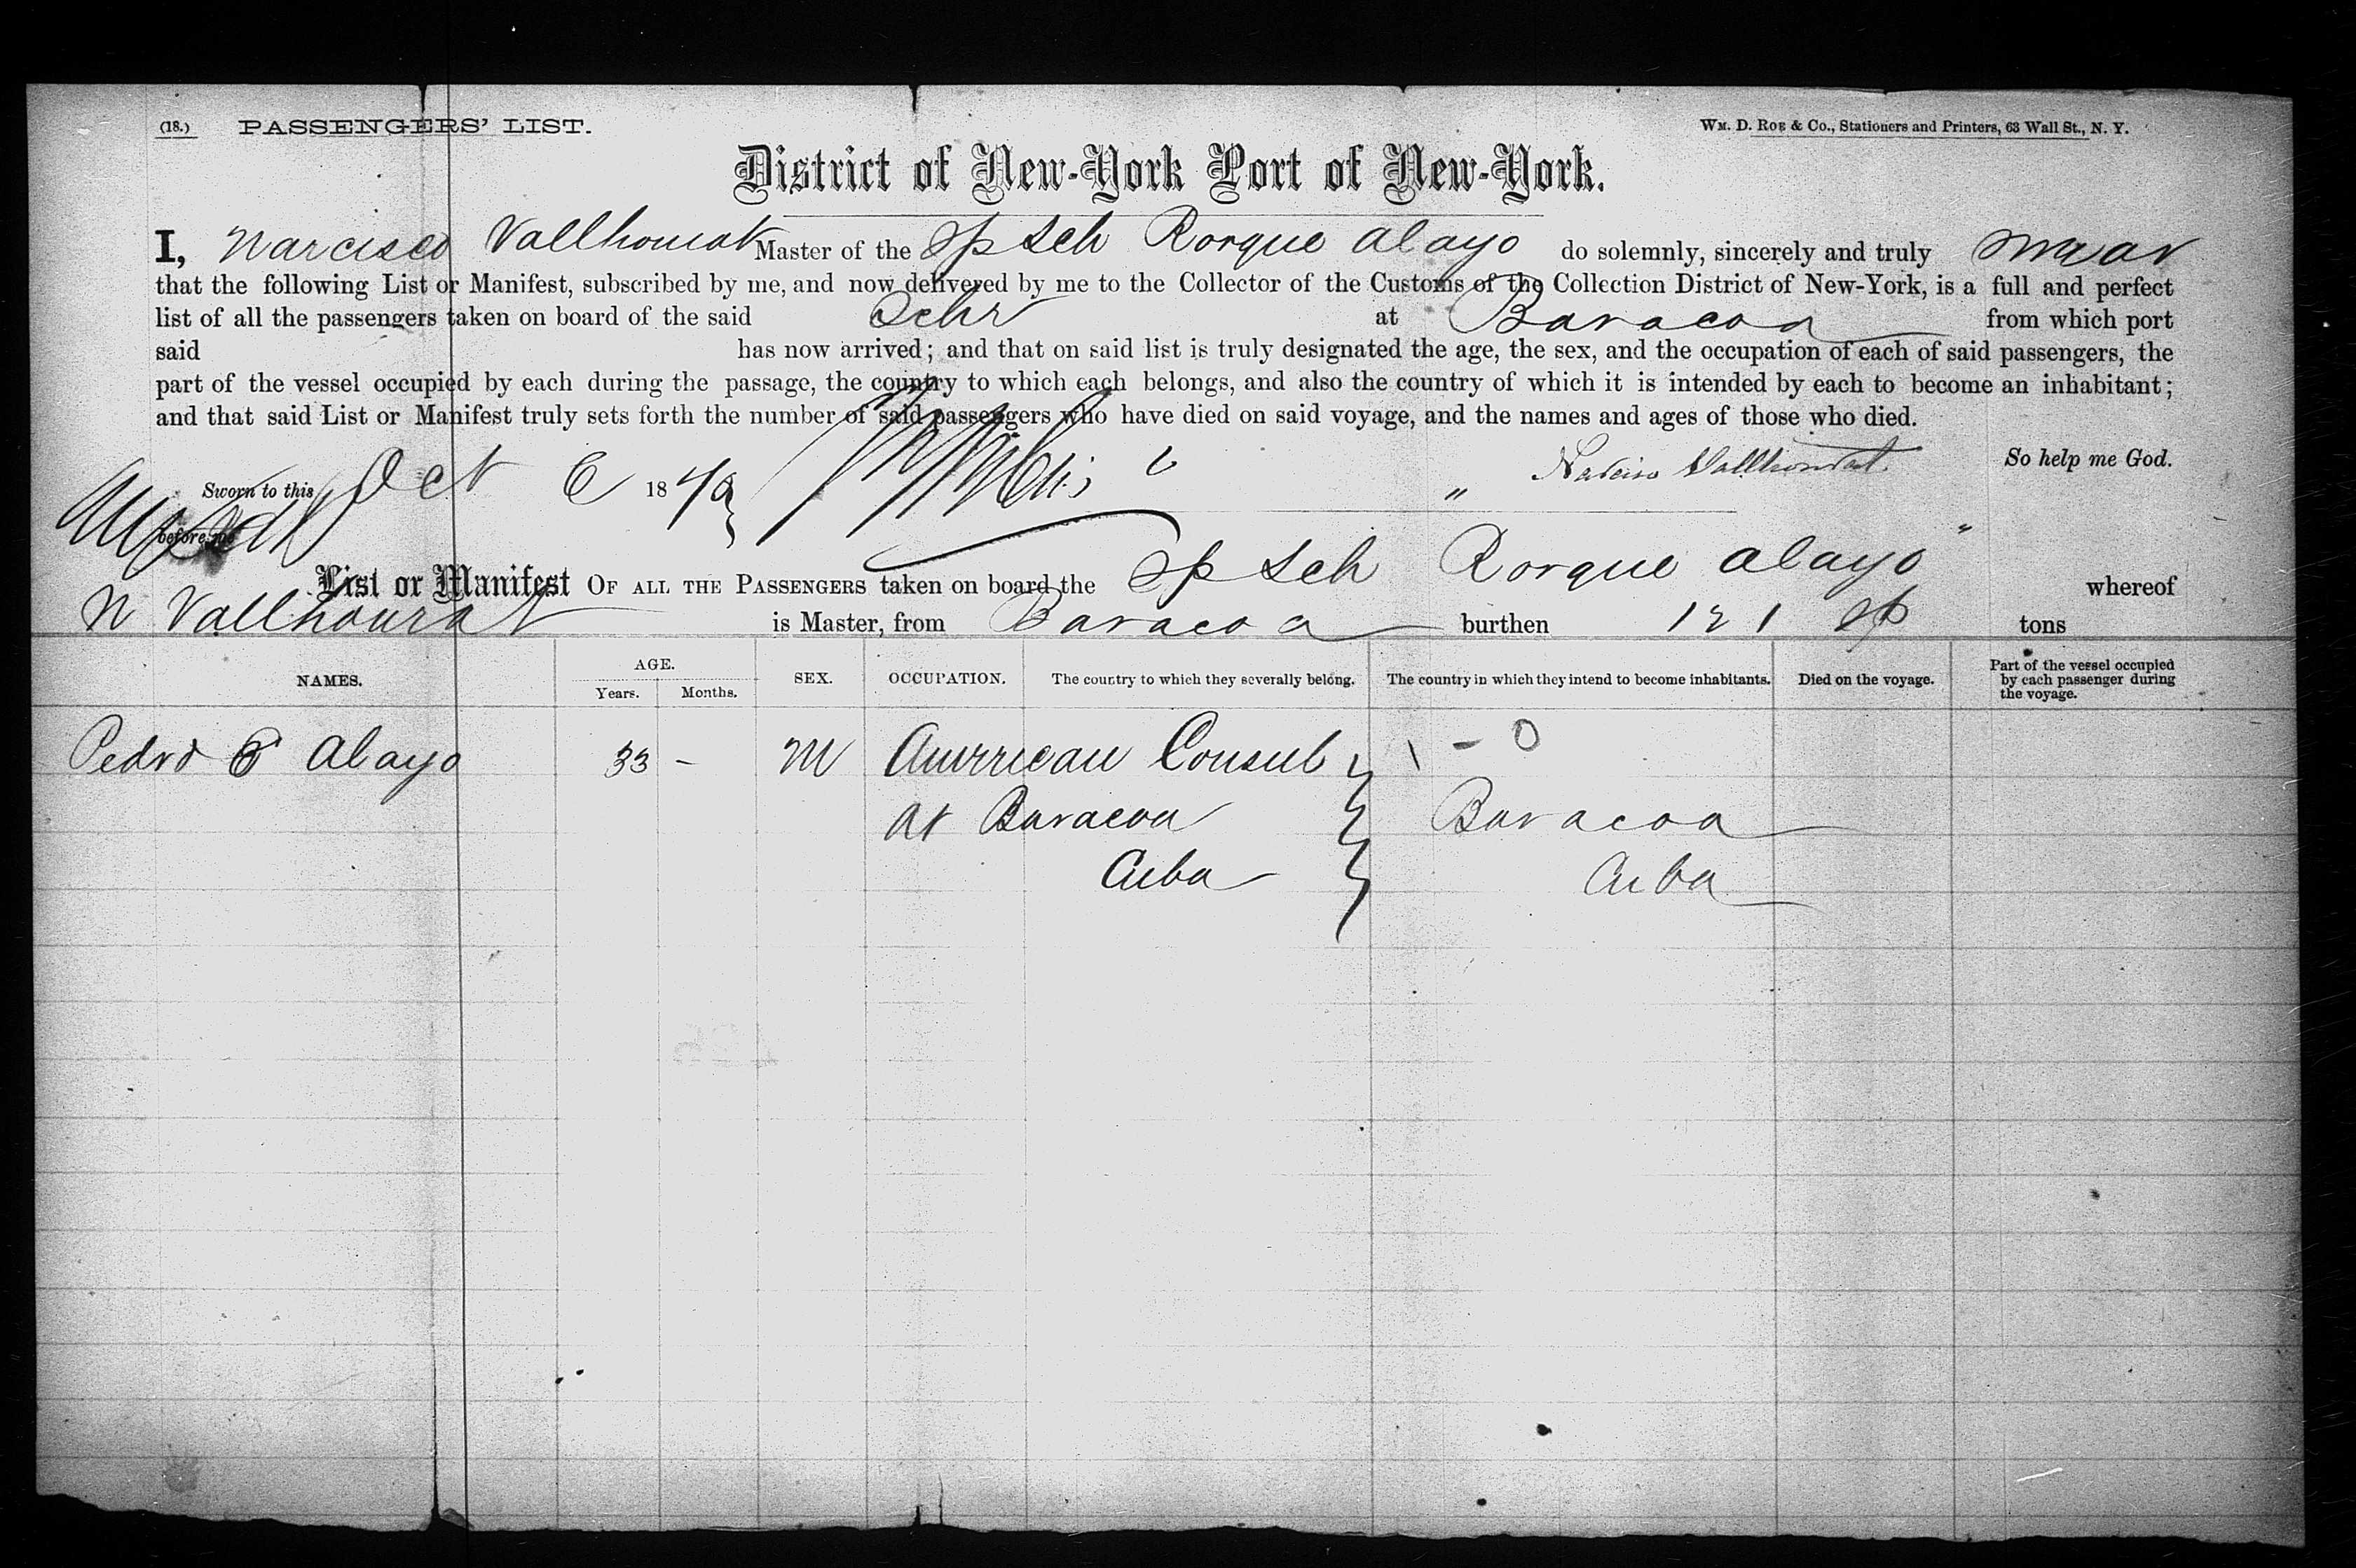 (18.) PASSENGERS' LIST. Wm. D. Roe & Co., Stationers and Printers, 63 Wall St., N. Y.
District of New-York Port of New-York.
I, Narciseo Vallhourat Master of the Sp Sch Rorque Alayo do solemnly, sincerely and truly swear
that the following List or Manifest, subscribed by me, and now delivered by me to the Collector of the Customs of the Collection District of New-York, is a full and perfect
list of all the passengers taken on board of the said Schr at Baracoa from which port
said has now arrived; and that on said list is truly designated the age, the sex, and the occupation of each of said passengers, the
part of the vessel occupied by each during the passage, the country to which each belongs, and also the country of which it is intended by each to become an inhabitant;
and that said List or Manifest truly sets forth the number of said passengers who have died on said voyage, and the names and ages of those who died.
So help me God.
Sworn to this Oct 6 1879 Narciso Vallhourat
before me
List or Manifest OF ALL THE PASSENGERS taken on board the Sp Sch Rorque Alayo" whereof
N Vallhourat is Master, from Baracoa burthen 121 Sp tons
NAMES. AGE. Years. Months. SEX. OCCUPATION. The country to which they severally belong. The country in which they intend to become inhabitants. Died on the voyage. Part of the vessel occupied by each passenger during the voyage.
Pedro E Alayo 33 - M American Consul 1 - 0
at Baracoa Baracoa
Cuba Cuba